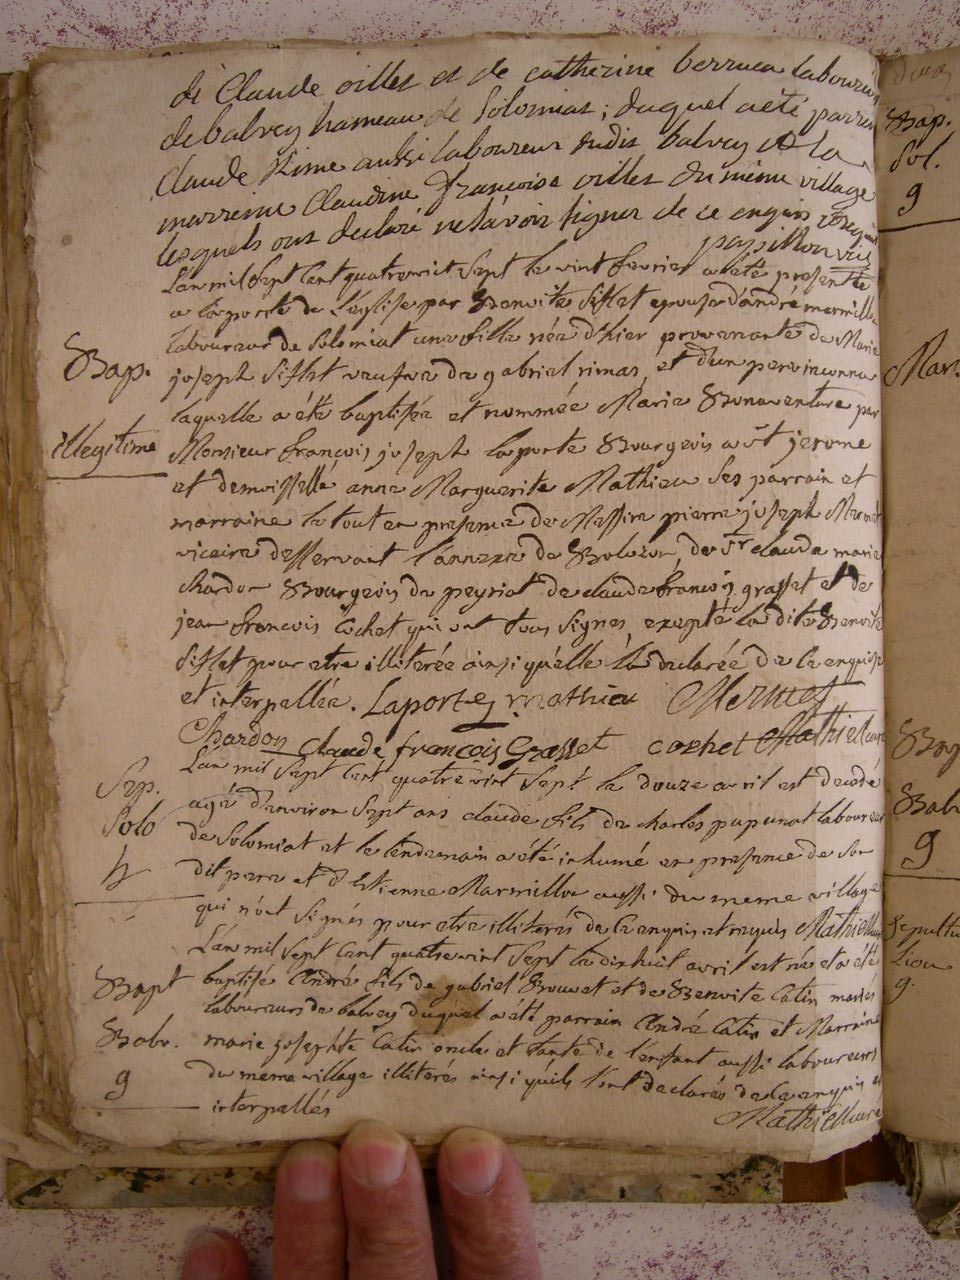 de Claude villet et de catherine berruca laboureur
de balvey hameau de Solomiat; duquel a été parrein
Claude Rime aussi laboureur dudit balvey et la
marreine Claudine françoise villet du même village
lesquels ont declaré ne savoir signer de ce enquis et requis
papillon vic
L'an mil sept cent quatrevint sept le vint fevrier a été presentée
a la porte de l'eglise par Benoite Sifflet epouse d'andré marmillon
laboureur de Solomiat une fille née d'hier provenante de Marie
joseph Sifflet veufve de gabriel rimas, et d'un pere inconnu
laquelle a été baptisée et nommée Marie Bonaventure par
Bap.
illegitime
Monsieur françois joseph laporte Bourgeois a st jerome
et demoiselle anne Marguerite Mathieu ses parrain et
marraine le tout en presence de Messire pierre joseph Mermet
vicaire desservant l'annexe de Bolozon, de sr claude marie
chardon Bourgeois de peyriat de claude françois grasset et de
jean françois cochet qui ont tous signes, exepté la dite Benoite
Sifflet pour etre illiterée ainsi qu'elle l'a declarée de ce enquise
et interpallée. Laporte mathieu Mermet
Chardon Claude françois Grasset cochet Mathieu curé
L'an mil sept cent quatre vint sept le douze avril est decedé
agé d'environ sept ans claude fils de charles pupunat laboureur
de Solomiat et le lendemain a été inhumé en presence de son
dit pere et d'Etienne Marmillon aussi du meme village
qui n'ont signés pour etre illiterés de ce enquis et requis Mathieu curé
Sep.
Solo
h
L'an mil sept cent quatre vint sept le dixhuit avril est né et a été
baptisé André fils de gabriel Brouvet et de Benoite Catin mariés
laboureurs de balvey duquel a été parrain André Catin et Marraine
marie josephte Catin oncle et tante de l'enfant aussi laboureurs
du meme village illiterés ainsi qu'ils l'ont declarés de ce enquis et
interpallés
Mathieu curé
Bapt
Bolv.
g
Bap.
Sol.
g
Mar.
g
g.